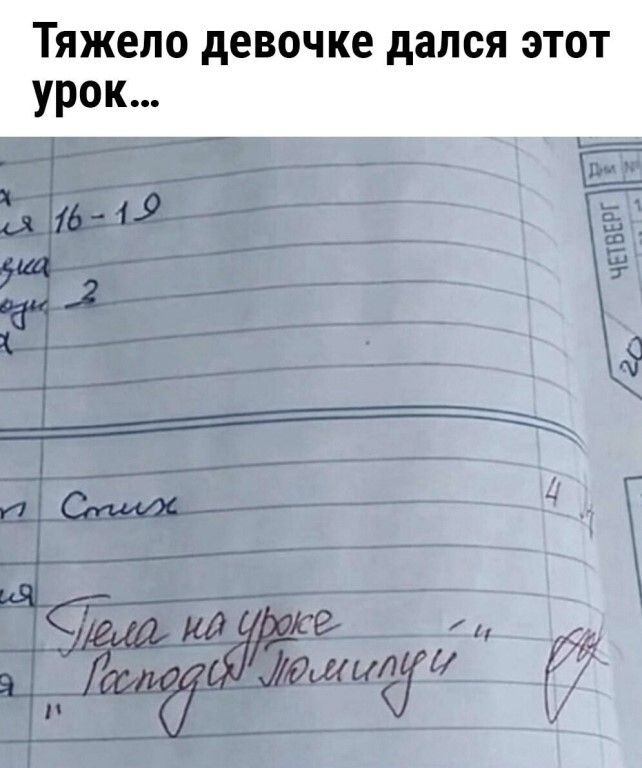 Тяжело девочке дался этот
урок...
Дни
ЧЕТВЕРГ
16-19
2
20
Стих
4
Пела на уроке
"Господи Помилуй"